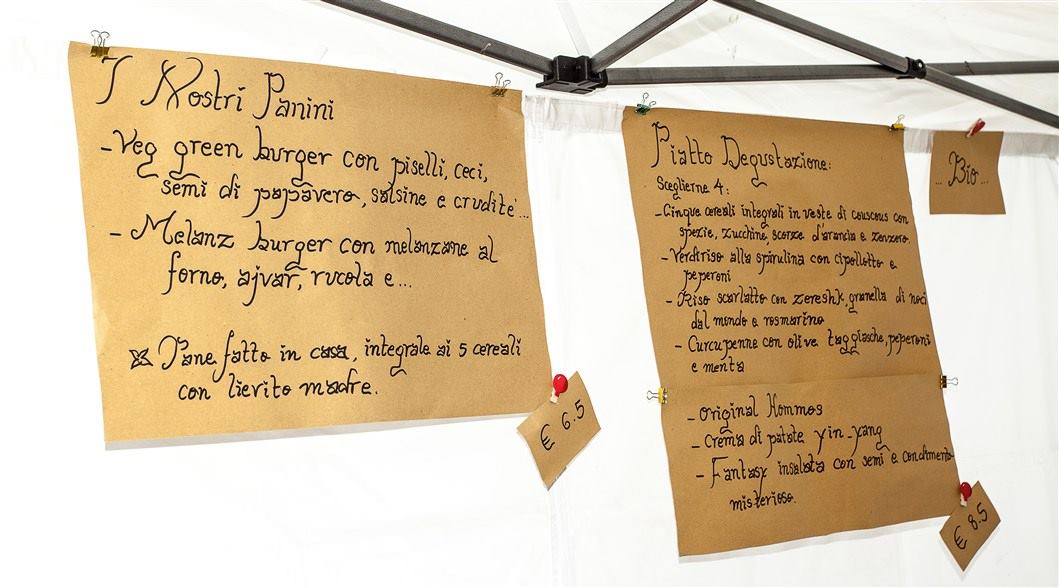 I Nostri Panini
- Veg green burger con piselli, ceci,
semi di papavero, salsine e crudité...
- Melanz burger con melanzane al
forno, ajvar, rucola e...
Pane fatto in casa, integrale ai 5 cereali
con lievito madre.
€ 6.5
Piatto Degustazione:
Sceglierne 4:
- Cinque cereali integrali in veste di couscous con
spezie, zucchine, scorze d'arancia e zenzero.
- Verdriso alla spirulina con cipollotto e
peperoni
- Riso scarlatto con zereshk, granella di noci
dal mondo e rosmarino
- Curcupenne con olive taggiasche, peperoni
e menta
- Original Hommos
- Crema di patate yin-yang
- Fantasy insalata con semi e condimento
misterioso.
€ 8.5
... Bio ...